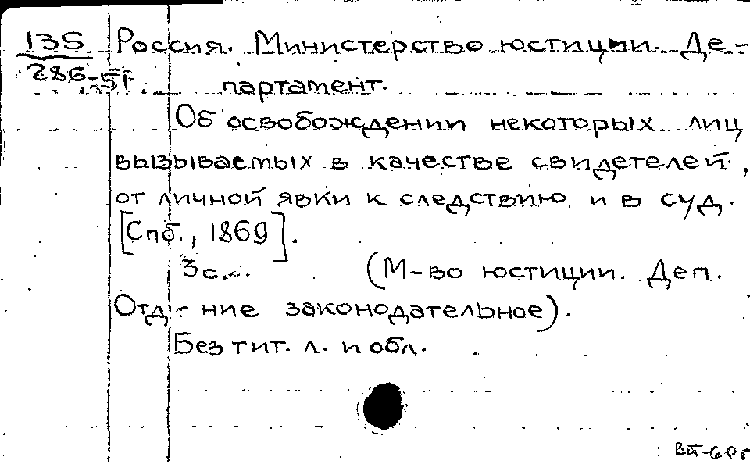 135 Россия. Министерство юстиции. Де-
286-51 партамент.
Об освобождении некоторых лиц
вызываемых в качестве свидетелей,
от личной явки к следствию и в суд.
[Спб., 1869].
3с. (М-во юстиции. Деп.
Отд-ние законодательное).
Без тит. л. и обл.